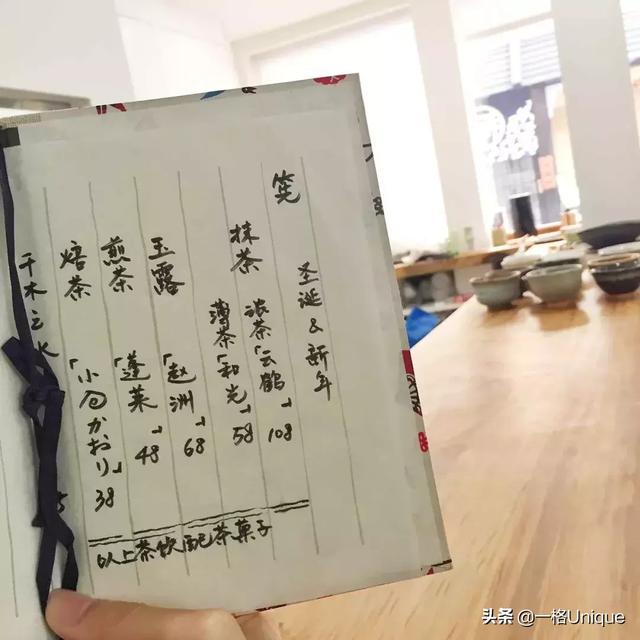 笼
圣诞&新年
抹茶
浓茶「云鹤」108
薄茶「和光」58
玉露
「赵洲」68
煎茶
「蓬莱」48
焙茶
「小匂かおり」38
以上茶饮配茶菓子
千木之水
头条 @一格Unique